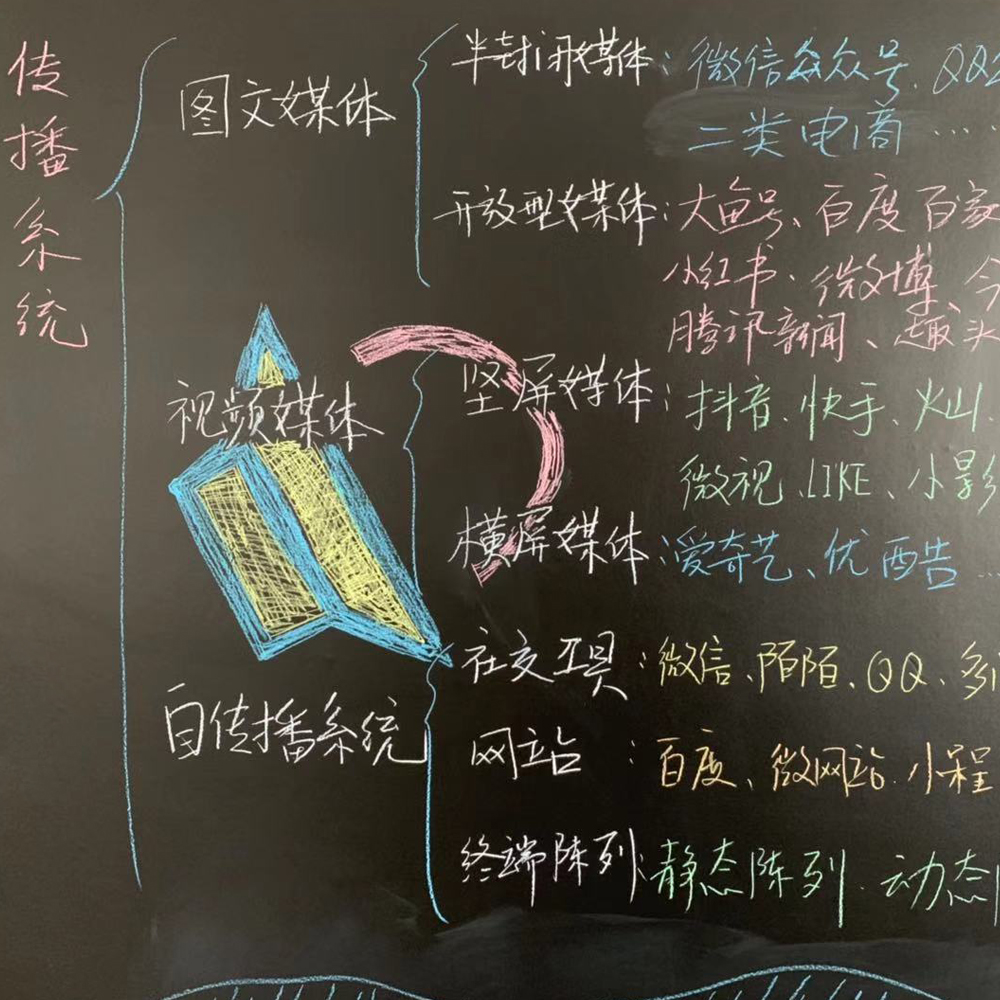 传播系统
图文媒体
半封闭媒体：微信公众号、QQ
二类电商……
开放型媒体：大鱼号、百度百家
小红书、微博、今
腾讯新闻、趣头
视频媒体
竖屏媒体：抖音、快手、火山、
微视、LIKE、小影
横屏媒体：爱奇艺、优酷…
自传播系统
社交工具：微信、陌陌、QQ、
网站：百度、微网站、小程
终端陈列：静态陈列、动态